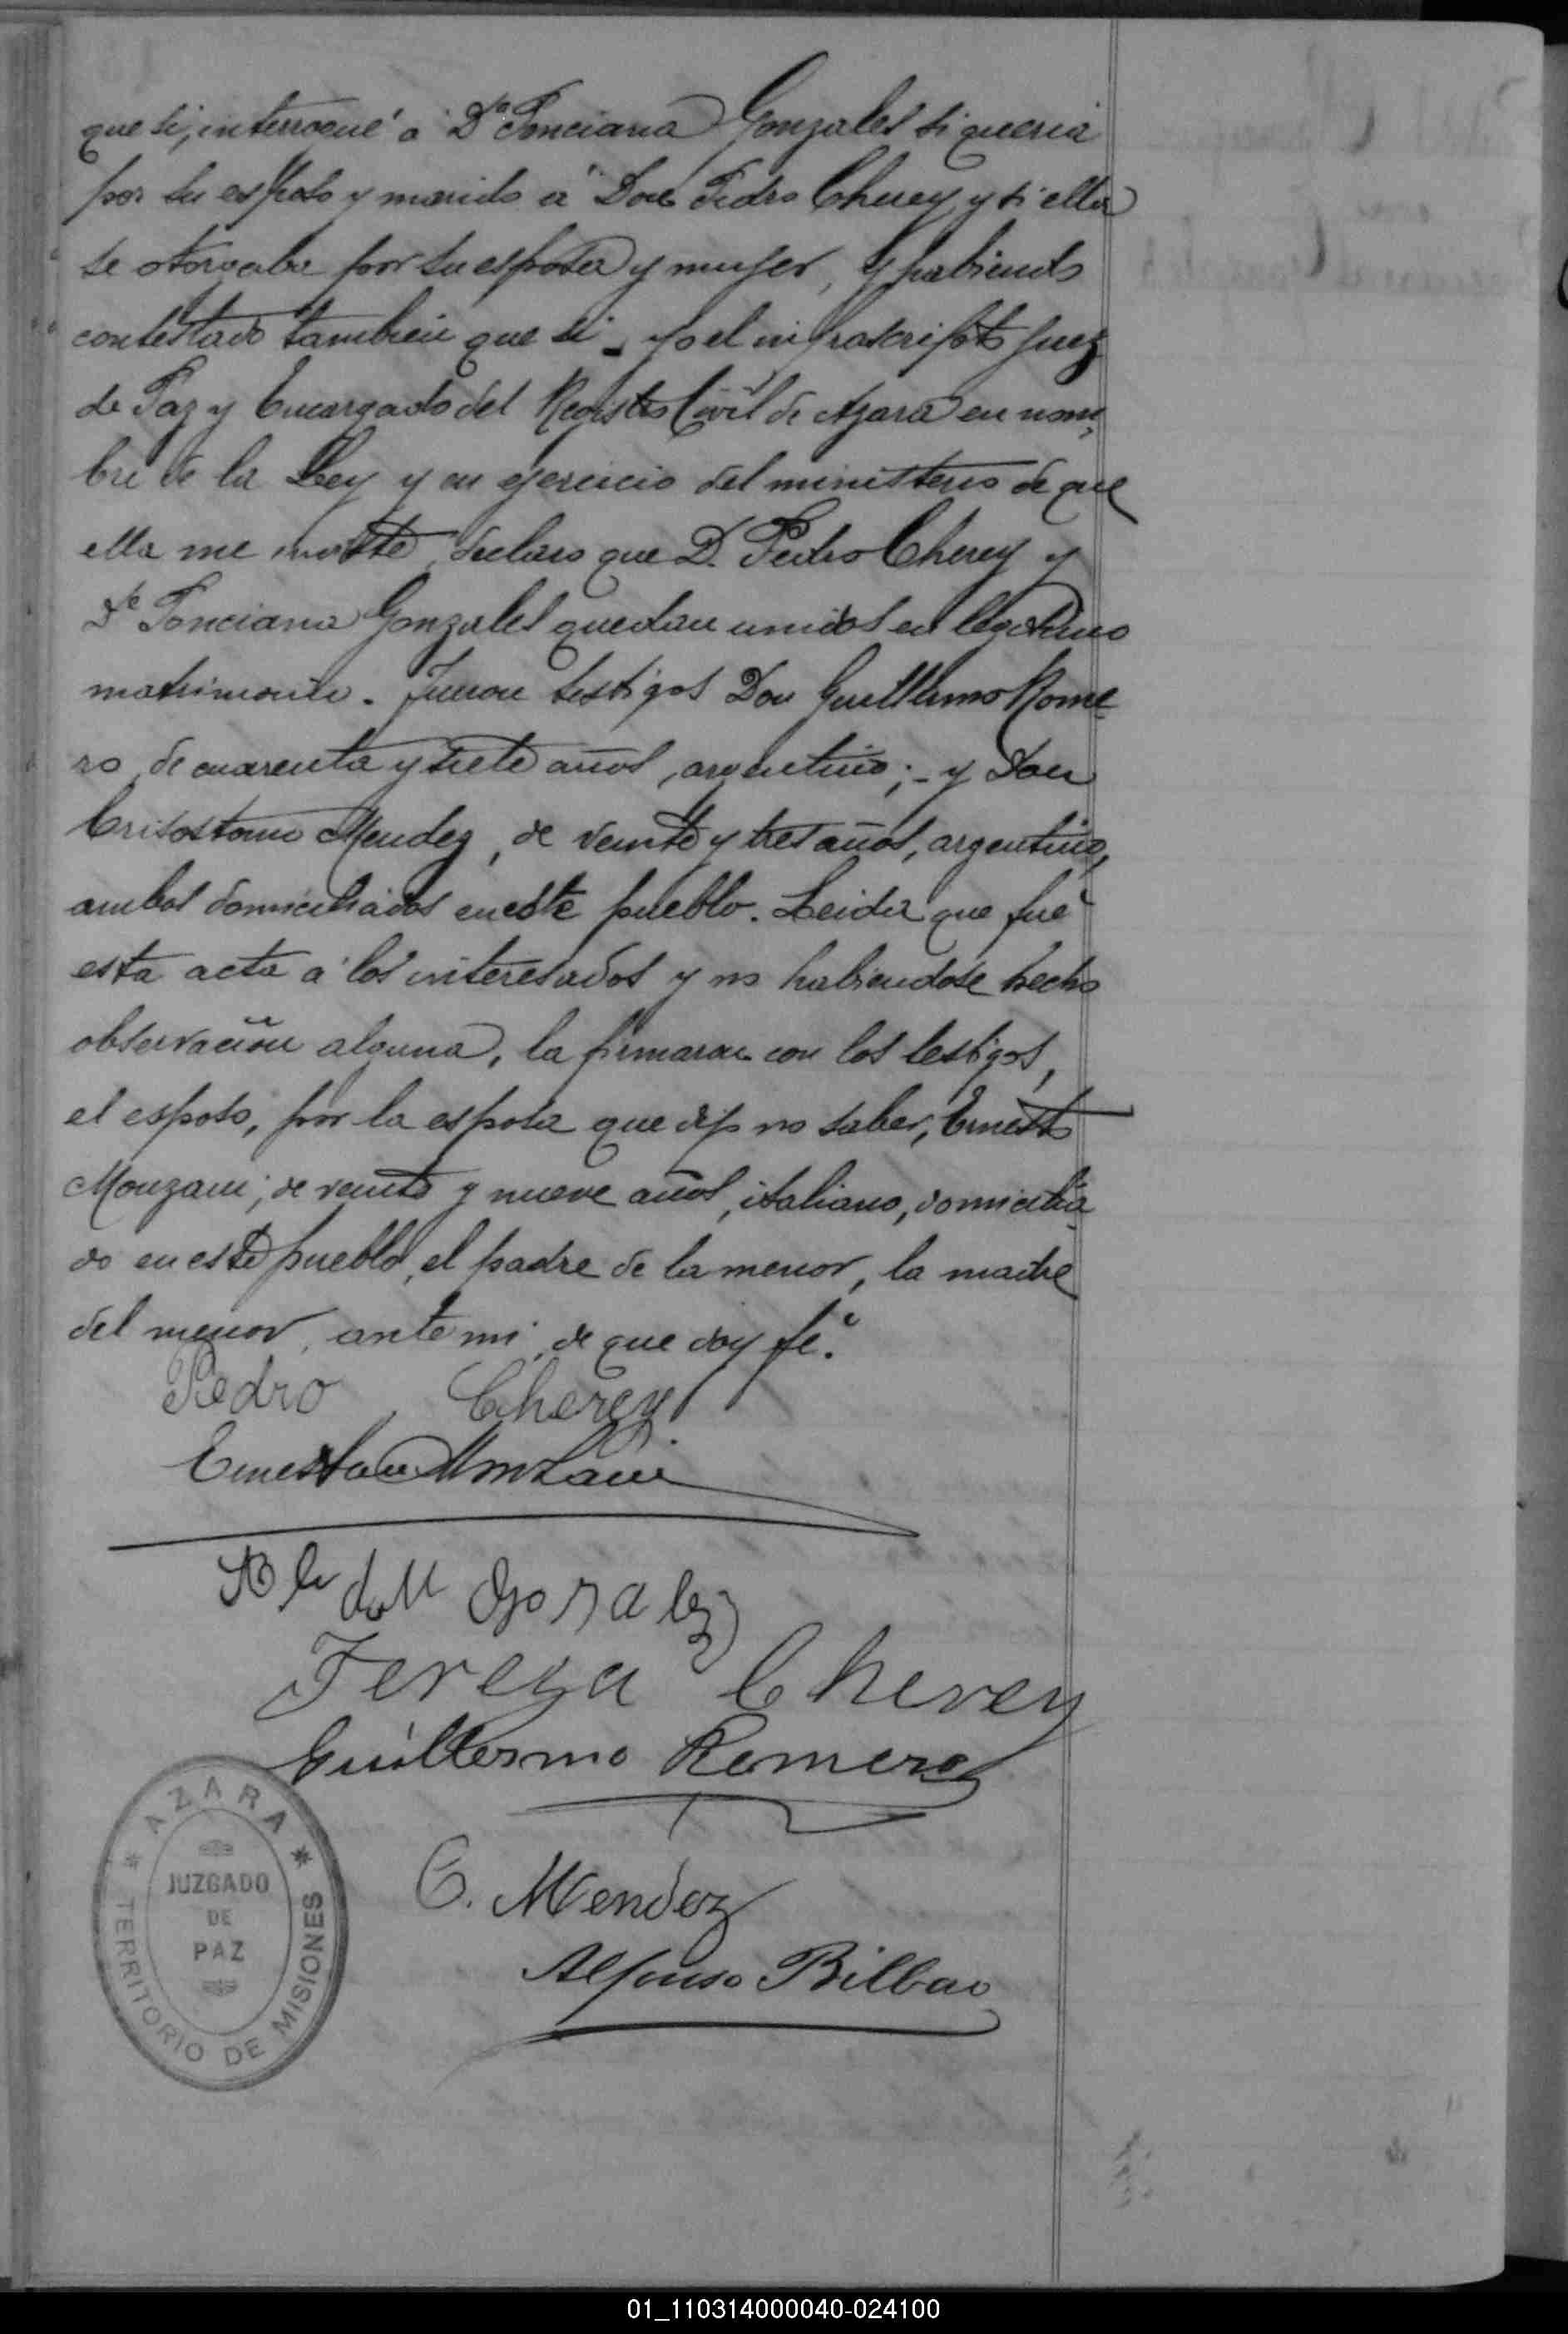 que si, interrogué á Dª Ponciana Gonzales si queria
por su esposo y marido á Don Pedro Cherey y si ella
se otorgaba por su esposa y mujer, y habiendo
contestado tambien que si - yo el infrascripto Juez
de Paz y Encargado del Registro Civil de Azara en nom-
bre de la Ley y en ejercicio del ministerio de que
ella me inviste, declaro que D. Pedro Cherey y
Dª Ponciana Gonzales quedan unidos en legitimo
matrimonio. Fueron testigos Don Guillermo Rome-
ro, de cuarenta y siete años, argentino; - y Don
Crisostomo Mendez, de veinte y tres años, argentino,
ambos domiciliados en este pueblo. Leida que fué
esta acta á los interesados y no habiendose hecho
observación alguna, la firmaron con los testigos,
el esposo, por la esposa que dijo no saber, Ernesto
Monzani; de veinte y nueve años, italiano, domicilia-
do en este pueblo, el padre de la menor, la madre
del menor, ante mi, de que doy fé.
Pedro Cherey
Monzani
Gosalez
Tereza Cherey
Guillermo Romero
C. Mendez
Alfonso Bilbao
* AZARA *
JUZGADO
DE
PAZ
TERRITORIO DE MISIONES
01_110314000040-024100